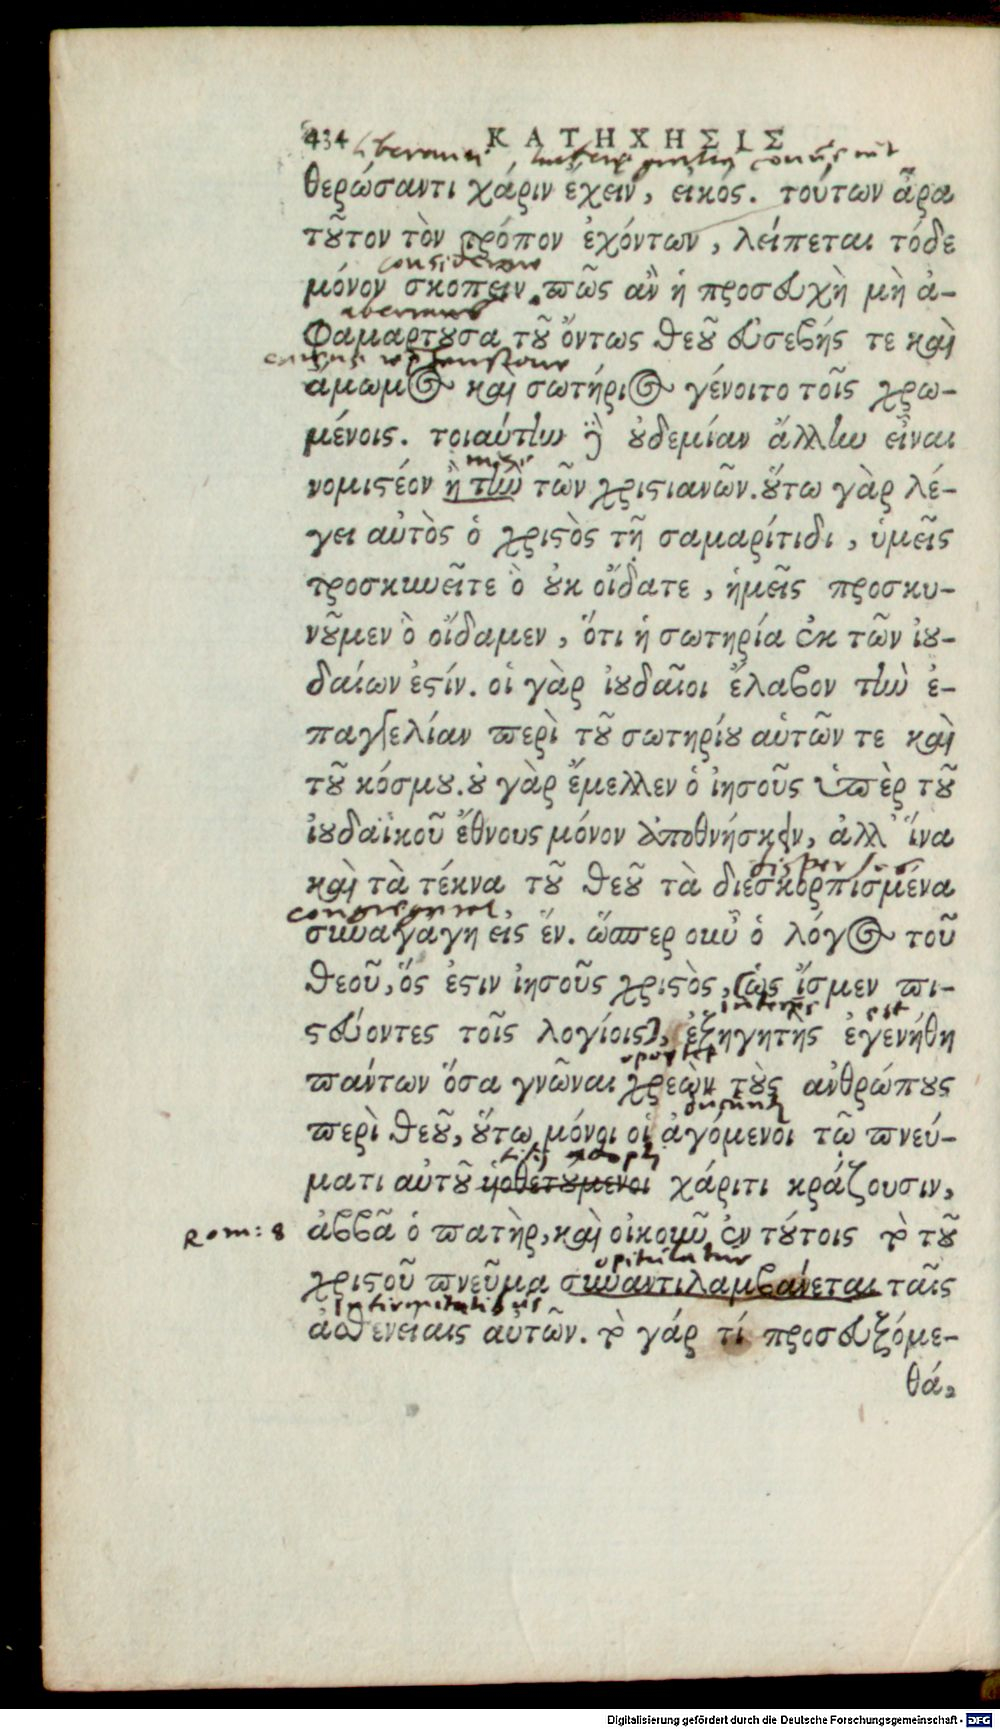 434 ΚΑΤΗΧΗΣΙΣ
θερώσαντι χάριν ἔχειν, εἰκός. τούτων ἄρα
τοῦτον τὸν τρόπον ἐχόντων, λείπεται τόδε
considerare
μόνον σκοπεῖν, πῶς ἂν ἡ προσευχὴ μὴ ἀ-
φαμαρτοῦσα τοῦ ὄντως θεοῦ εὐσεβής τε καὶ
ἄμωμος καὶ σωτήριος γένοιτο τοῖς χρω-
μένοις. τοιαύτην δὲ οὐδεμίαν ἄλλην εἶναι
nisi
νομιστέον ἢ τὴν τῶν χριστιανῶν. οὕτω γὰρ λέ-
γει αὐτὸς ὁ χριστὸς τῇ σαμαρίτιδι, ὑμεῖς
προσκυνεῖτε ὃ οὐκ οἴδατε, ἡμεῖς προσκυ-
νοῦμεν ὃ οἴδαμεν, ὅτι ἡ σωτηρία ἐκ τῶν ἰου-
δαίων ἐστίν. οἱ γὰρ ἰουδαῖοι ἔλαβον τὴν ἐ-
παγγελίαν περὶ τοῦ σωτηρίου αὐτῶν τε καὶ
τοῦ κόσμου. οὐ γὰρ ἔμελλεν ὁ ἰησοῦς ὑπὲρ τοῦ
ἰουδαϊκοῦ ἔθνους μόνον ἀποθνήσκειν, ἀλλ' ἵνα
καὶ τὰ τέκνα τοῦ θεοῦ τὰ διεσκορπισμένα
συναγάγη εἰς ἕν. ὥσπερ οὖν ὁ λόγος τοῦ
θεοῦ, ὅς ἐστιν ἰησοῦς χριστὸς, (ὡς ἴσμεν πι-
interpres est
στεύοντες τοῖς λογίοις), ἐξηγητὴς ἐγενήθη
oportet
πάντων ὅσα γνῶναι χρεὼν τοὺς ἀνθρώπους
περὶ θεοῦ, οὕτω μόνοι οἱ ἀγόμενοι τῷ πνεύ-
ματι αὐτοῦ υἱοθετούμενοι χάριτι κράζουσιν,
Rom: 8 ἀββᾶ ὁ πατὴρ, καὶ οἰκοῦν ἐν τούτοις τὸ τοῦ
opitulatur
χριστοῦ πνεῦμα συναντιλαμβάνεται ταῖς
infirmitatibus
ἀσθενείαις αὐτῶν. τὸ γάρ τί προσευξόμε-
θά,
Digitalisierung gefördert durch die Deutsche Forschungsgemeinschaft - DFG